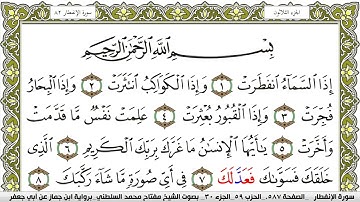 الجزء الثلاثون
سورة الإنفطار ٨٢
بِسْمِ اللَّهِ الرَّحْمَٰنِ الرَّحِيمِ
إِذَا السَّمَاءُ انفَطَرَتْ ١ وَإِذَا الْكَوَاكِبُ انتَثَرَتْ ٢ وَإِذَا الْبِحَارُ
فُجِّرَتْ ٣ وَإِذَا الْقُبُورُ بُعْثِرَتْ ٤ عَلِمَتْ نَفْسٌ مَّا قَدَّمَتْ
وَأَخَّرَتْ ٥ يَٰأَيُّهَا الْإِنسَٰنُ مَا غَرَّكَ بِرَبِّكَ الْكَرِيمِ ٦ الَّذِي
خَلَقَكَ فَسَوَّىٰكَ فَعَدَّلَكَ ٧ فِي أَيِّ صُورَةٍ مَّا شَاءَ رَكَّبَكَ ٨
سورة الإنفطار الصفحة ٥٨٧ـ الحزب ٥٩ الجزء ٣٠ بصوت الشيخ مفتاح محمد السلطني برواية ابن جماز عن أبي جعفر